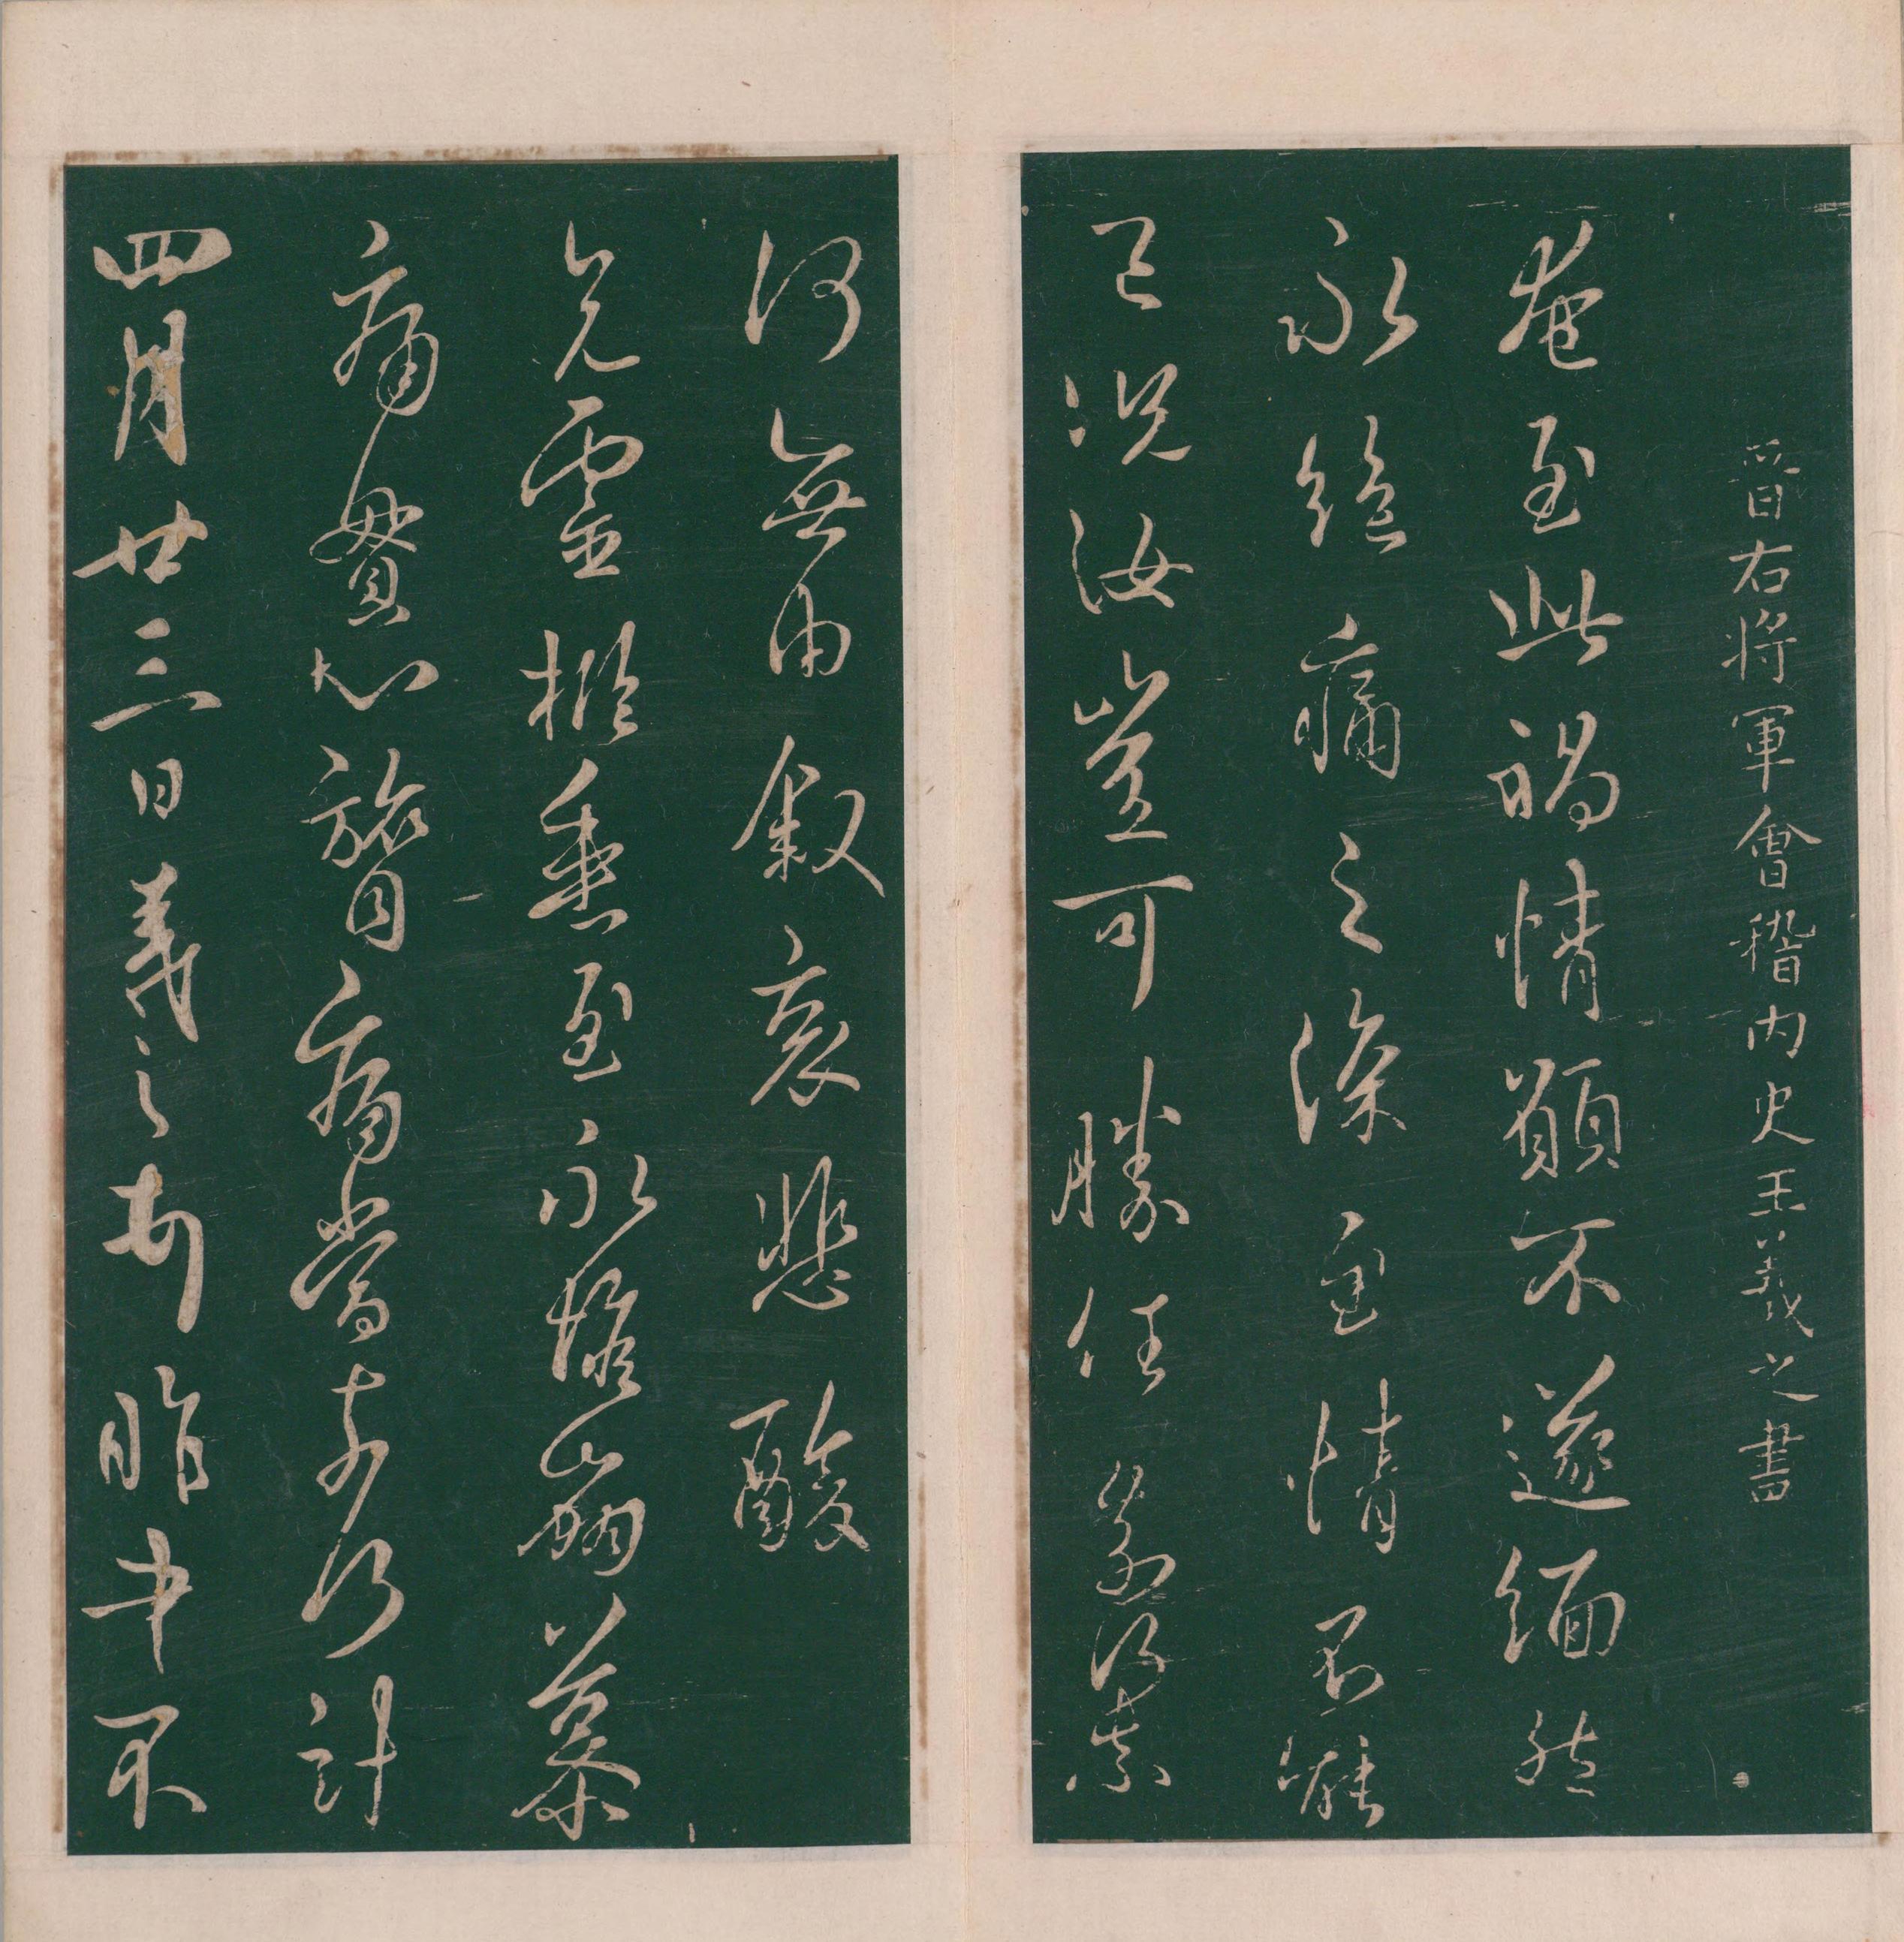 晉右將軍會稽內史王羲之書
奄至此禍情願不遂緬然
永絕痛之深至情不能
已況汝豈可勝任奈何奈何
何無由敘哀悲酸
兄靈柩垂至永惟崩慕
痛貫心膂痛當奈何計
四月廿三日羲之頓首昨書不